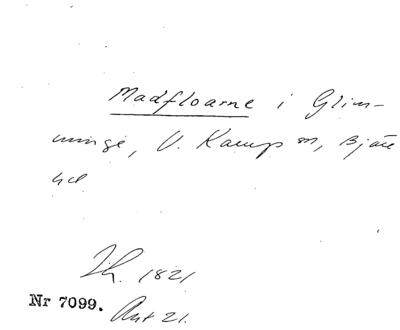 Madfloarne i Glim-
minge, V. Karup sn, Bjäre
hd
Th. 1821
Nr 7099. Ant 21.